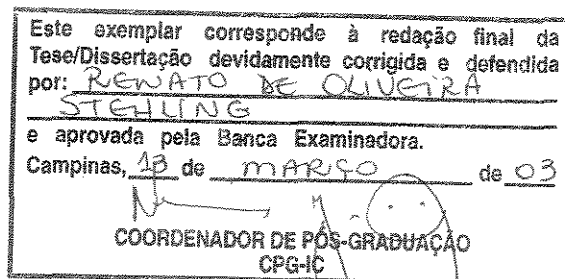 Este exemplar corresponde à redação final da
Tese/Dissertação devidamente corrigida e defendida
por: RENATO DE OLIVEIRA
STEHLING
e aprovada pela Banca Examinadora.
Campinas, 13 de MARÇO de 03
COORDENADOR DE PÓS-GRADUAÇÃO
CPG-IC